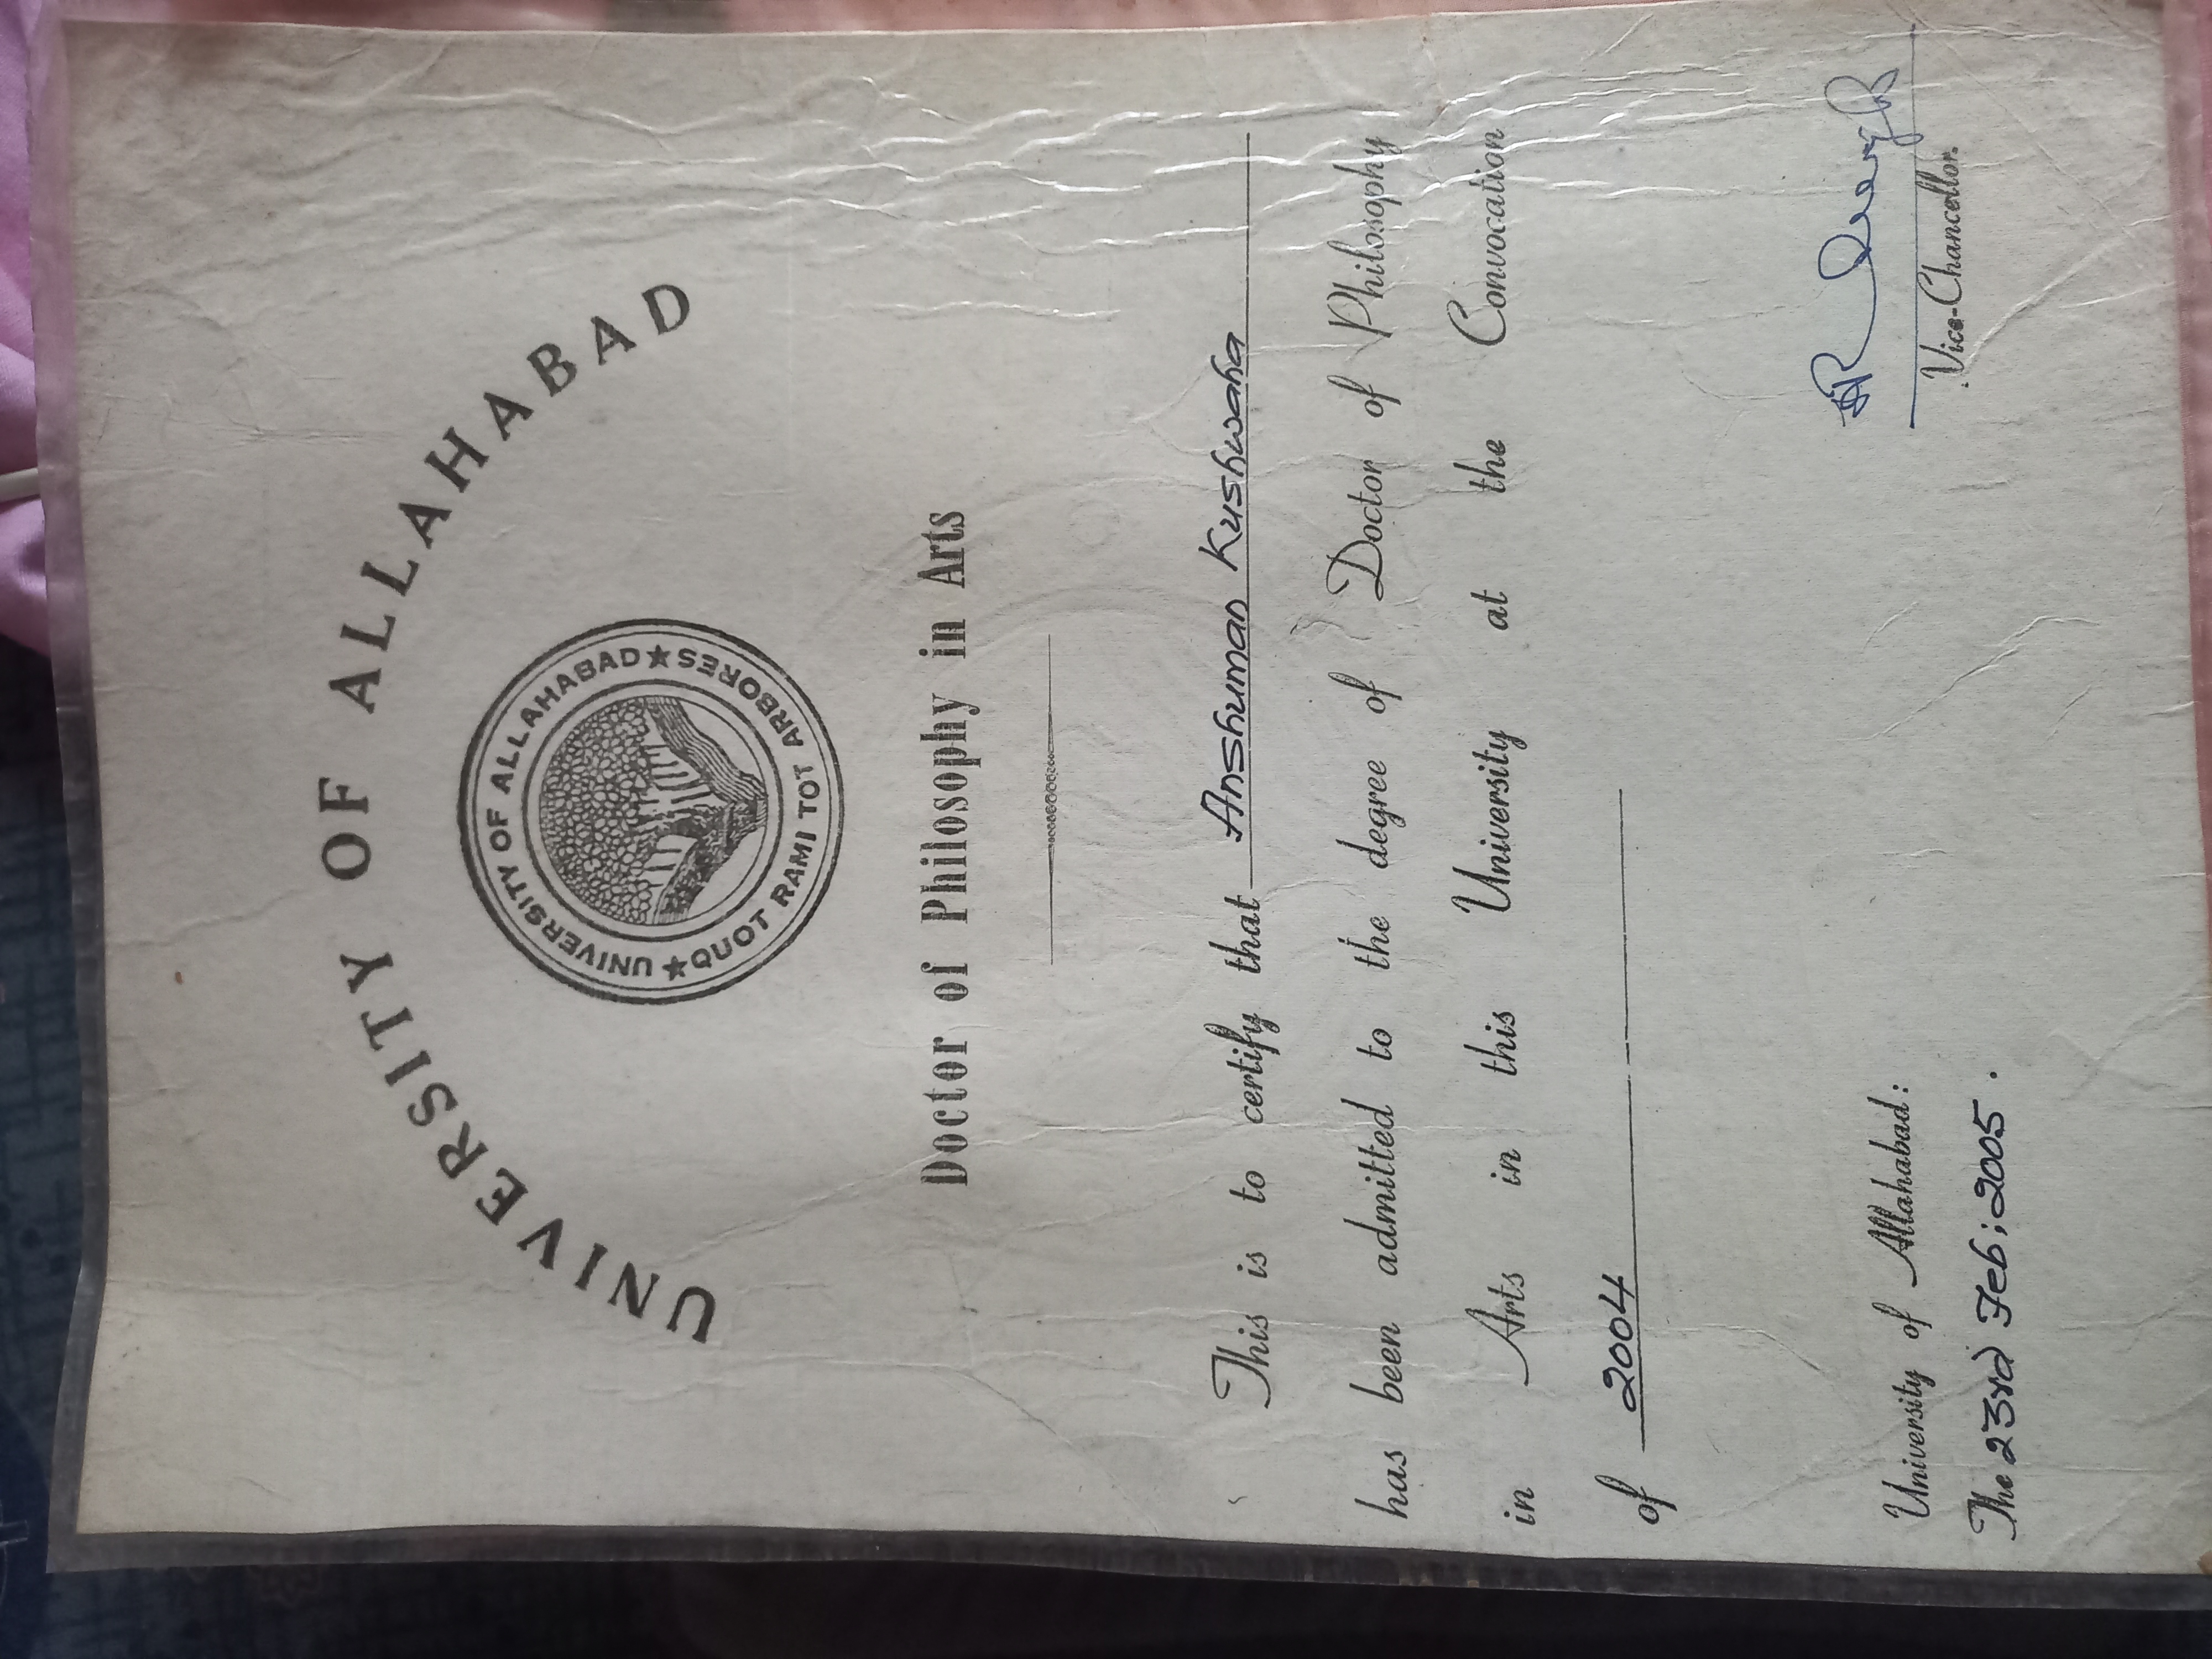 UNIVERSITY OF ALLAHABAD
UNIVERSITY OF ALLAHABAD
QUOT RAMI TOT ARBORES
Doctor of Philosophy in Arts
This is to certify that Anshuman Kushwaha
has been admitted to the degree of Doctor of Philosophy
in Arts in this University at the Convocation
of 2004
University of Allahabad:
The 23rd Feb; 2005.
Vice-Chancellor.